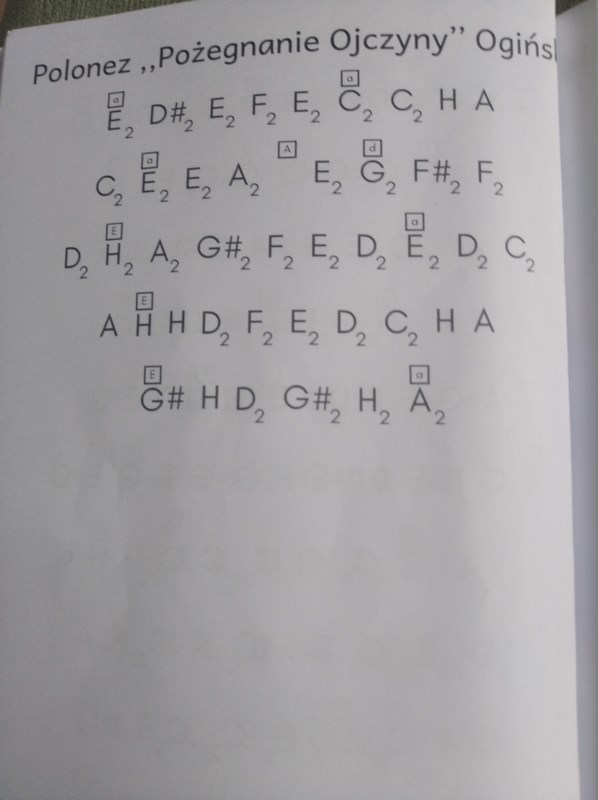 Polonez ,,Pożegnanie Ojczyny” Ogińs
a a
E2 D#2 E2 F2 E2 C2 C2 H A
a A d
C2 E2 E2 A2 E2 G2 F#2 F2
E a
D2 H2 A2 G#2 F2 E2 D2 E2 D2 C2
E
A H H D2 F2 E2 D2 C2 H A
E a
G# H D2 G#2 H2 A2